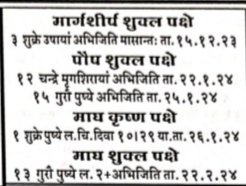 मार्गशीर्ष शुक्ल पक्षे
३ शुक्रे उषायां अभिजिति मासान्तः ता. १५.१२.२३
पौष शुक्ल पक्षे
१२ चन्द्रे मृगशिरायां अभिजिति ता. २२.१.२४
१५ गुरौ पुष्ये अभिजिति ता. २५.१.२४
माघ कृष्ण पक्षे
१ शुक्रे पुष्ये ल.चि. दिवा १०।२१ या.ता. २६.१.२४
माघ शुक्ल पक्षे
१३ गुरौ पुष्ये ल. २+अभिजिति ता. २२.२.२४